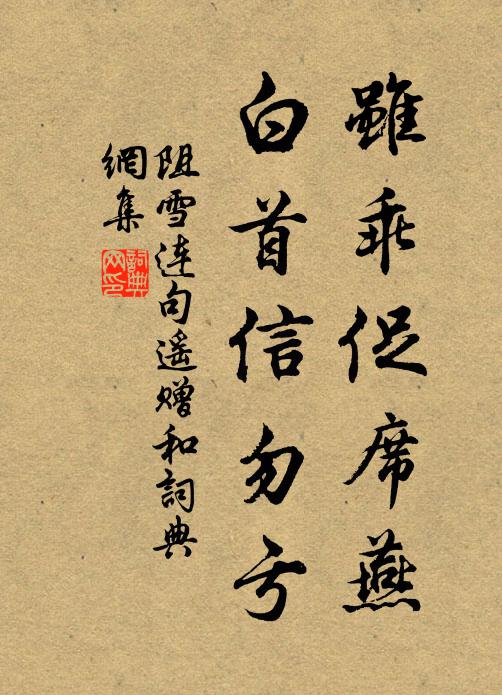 雖乖促席燕
白首信勿亏
阻雪连句遥赠和詞典
網集
詞典网印